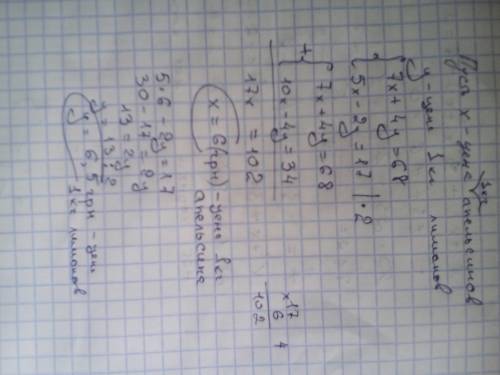 Пусть x - цена 1кг апельсинов
y - цена 1кг лимонов
7x + 4y = 68
5x - 2y = 17 | · 2
7x + 4y = 68
+
10x - 4y = 34
17x = 102
x = 6 (грн) - цена 1кг
апельсина
5·6 - 2y = 17
30 - 17 = 2y
13 = 2y
y = 13 : 2
y = 6,5 грн - цена
1кг лимонов
x 17
6
102
4